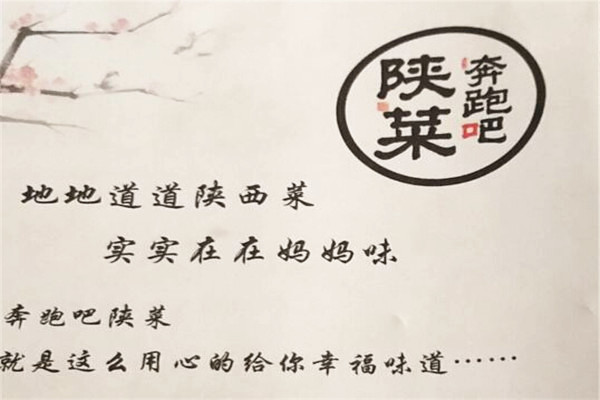 奔跑吧
陕菜
地地道道陕西菜
实实在在妈妈味
奔跑吧陕菜
就是这么用心的给你幸福味道……